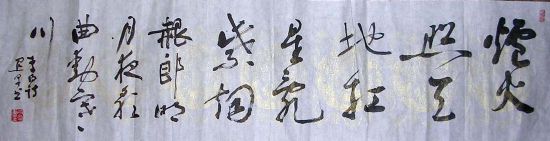 爐火
照天
地紅
星亂
紫烟
赧郎明
月夜歌
曲動寒
川
李白詩